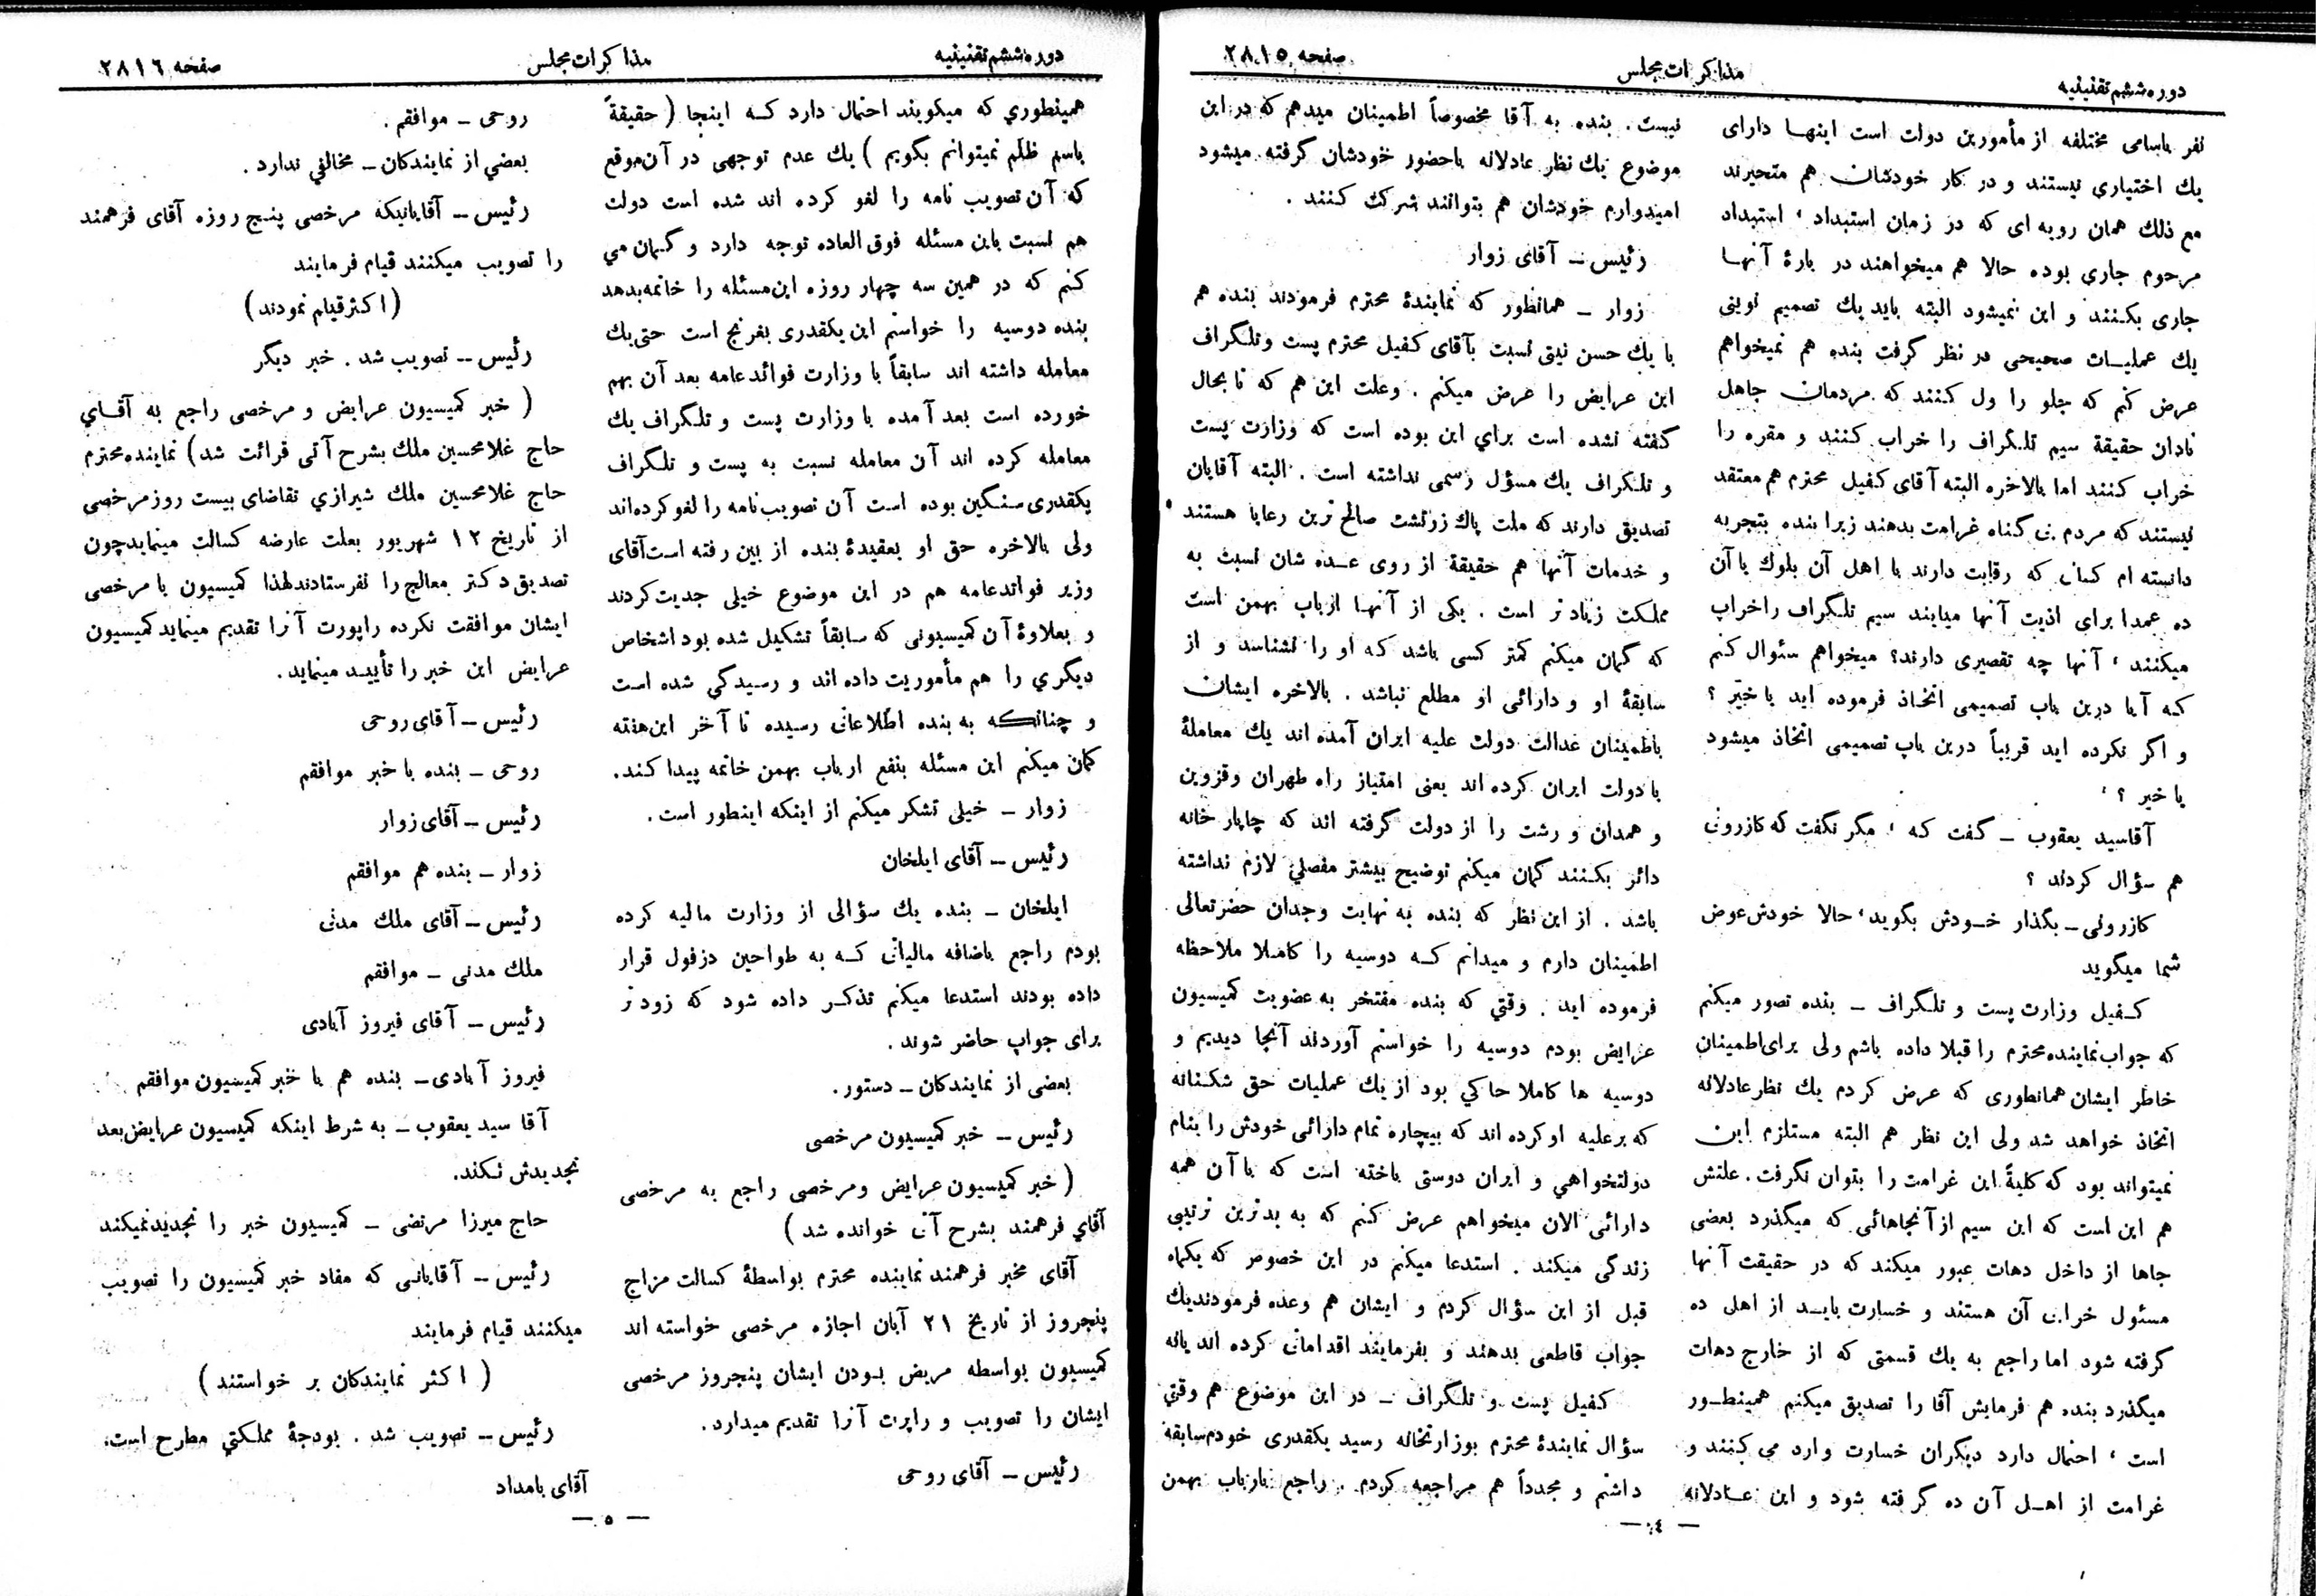 دوره ششم تقنینیه
مذاکرات مجلس
صفحه ۲۸۱۵
نفر باسامی مختلفه از مأمورین دولت است اینها دارای
یك اختیاری نیستند و در کار خودشان هم متحیرند
مع ذلك همان رویه ای که در زمان استبداد ، استبداد
مرحوم جاری بوده حالا هم میخواهند در بارۀ آنها
جاری بکنند و این نمیشود البته باید یك تصمیم نوینی
یك عملیات صحیحی در نظر گرفت بنده هم نمیخواهم
عرض کنم که جلو را ول کنند که مردمان جاهل
نادان حقیقة سیم تلگراف را خراب کنند و مقره را
خراب کنند اما بالاخره البته آقای کفیل محترم هم معتقد
نیستند که مردم بی گناه غرامت بدهند زیرا بنده بتجربه
دانسته ام کسانی که رقابت دارند با اهل آن بلوك یا آن
ده عمدا برای اذیت آنها میایند سیم تلگراف را خراب
میکنند ، آنها چه تقصیری دارند؟ میخواهم سئوال کنم
که آیا درین باب تصمیمی اتخاذ فرموده اید یا خیر ؟
و اگر نکرده اید قریباً درین باب تصمیمی اتخاذ میشود
یا خیر ؟
آقاسید یعقوب ــ گفت که ، مگر نگفت که کازرونی
هم سؤال کردند ؟
کازرونی ــ بگذار خودش بگوید، حالا خودش عوض
شما میگوید
کفیل وزارت پست و تلگراف ــ بنده تصور میکنم
که جواب نماینده محترم را قبلا داده باشم ولی برای اطمینان
خاطر ایشان همانطوری که عرض کردم یك نظر عادلانه
اتخاذ خواهد شد ولی این نظر هم البته مستلزم این
نمیتواند بود که کلیةً این غرامت را بتوان نگرفت . علتش
هم این است که این سیم از آنجاهائی که میگذرد بعضی
جاها از داخل دهات عبور میکند که در حقیقت آنها
مسئول خرابی آن هستند و خسارت باید از اهل ده
گرفته شود اما راجع به یك قسمتی که از خارج دهات
میگذرد بنده هم فرمایش آقا را تصدیق میکنم همینطور
است ، احتمال دارد دیگران خسارت وارد می کنند و
غرامت از اهل آن ده گرفته شود و این عادلانه
نیست . بنده به آقا مخصوصاً اطمینان میدهم که در این
موضوع یك نظر عادلانه باحضور خودشان گرفته میشود
امیدوارم خودشان هم بتوانند شرکت کنند .
رئیس ــ آقای زوار
زوار ــ همانطور که نمایندۀ محترم فرمودند بنده هم
با یك حسن نیتی نسبت بآقای کفیل محترم پست و تلگراف
این عرایض را عرض میکنم . وعلت این هم که تا بحال
گفته نشده است برای این بوده است که وزارت پست
و تلگراف یك مسؤل رسمی نداشته است . البته آقایان
تصدیق دارند که ملت پاك زرتشت صالح ترین رعایا هستند
و خدمات آنها هم حقیقة از روی عده شان نسبت به
مملکت زیادتر است . یکی از آنها ارباب بهمن است
که گمان میکنم کمتر کسی باشد که او را نشناسد و از
سابقۀ او و دارائی او مطلع نباشد . بالاخره ایشان
باطمینان عدالت دولت علیه ایران آمده اند یك معاملۀ
با دولت ایران کرده اند یعنی امتیاز راه طهران وقزوین
و همدان و رشت را از دولت گرفته اند که چاپار خانه
دائر بکنند گمان میکنم توضیح بیشتر مفصلی لازم نداشته
باشد . از این نظر که بنده به نهایت وجدان حضرتعالی
اطمینان دارم و میدانم که دوسیه را کاملا ملاحظه
فرموده اید . وقتی که بنده مفتخر به عضویت کمیسیون
عرایض بودم دوسیه را خواستم آوردند آنجا دیدیم و
دوسیه ها کاملا حاکی بود از یك عملیات حق شکنانه
که برعلیه او کرده اند که بیچاره تمام دارائی خودش را بنام
دولتخواهی و ایران دوستی باخته است که با آن همه
دارائی الان میخواهم عرض کنم که به بدترین ترتیبی
زندگی میکند . استدعا میکنم در این خصوص که یکماه
قبل از این سؤال کردم و ایشان هم وعده فرمودند یك
جواب قاطعی بدهند و بفرمایند اقداماتی کرده اند یانه
کفیل پست و تلگراف ــ در این موضوع هم وقتی
سؤال نمایندۀ محترم بوزارتخانه رسید یکقدری خودم سابقه
داشتم و مجدداً هم مراجعه کردم . راجع بارباب بهمن
— ٤ —
دوره ششم تقنینیه
مذاکرات مجلس
صفحه ۲۸۱٦
همینطوری که میگویند احتمال دارد که اینجا ( حقیقةً
باسم ظلم نمیتوانم بگویم ) یك عدم توجهی در آن موقع
که آن تصویب نامه را لغو کرده اند شده است دولت
هم نسبت باین مسئله فوق العاده توجه دارد و گمان می
کنم که در همین سه چهار روزه این مسئله را خاتمه بدهد
بنده دوسیه را خواستم این یکقدری بغرنج است حتی یك
معامله داشته اند سابقاً با وزارت فوائد عامه بعد آن بهم
خورده است بعد آمده با وزارت پست و تلگراف یك
معامله کرده اند آن معامله نسبت به پست و تلگراف
یکقدری سنگین بوده است آن تصویب نامه را لغو کرده اند
ولی بالاخره حق او بعقیدۀ بنده از بین رفته است آقای
وزیر فوائد عامه هم در این موضوع خیلی جدیت کردند
و بعلاوۀ آن کمیسیونی که سابقاً تشکیل شده بود اشخاص
دیگری را هم مأموریت داده اند و رسیدگی شده است
و چنانکه به بنده اطلاعاتی رسیده تا آخر این هفته
گمان میکنم این مسئله بنفع ارباب بهمن خاتمه پیدا کند.
زوار ــ خیلی تشکر میکنم از اینکه اینطور است .
رئیس ــ آقای ایلخان
ایلخان ــ بنده یك سؤالی از وزارت مالیه کرده
بودم راجع باضافه مالیاتی که به طواحین دزفول قرار
داده بودند استدعا میکنم تذکر داده شود که زودتر
برای جواب حاضر شوند .
بعضی از نمایندکان ــ دستور .
رئیس ــ خبر کمیسیون مرخصی
( خبر کمیسیون عرایض ومرخصی راجع به مرخصی
آقای فرهمند بشرح آتی خوانده شد )
آقای مخبر فرهمند نماینده محترم بواسطۀ کسالت مزاج
پنجروز از تاریخ ۲۱ آبان اجازه مرخصی خواسته اند
کمیسیون بواسطه مریض بودن ایشان پنجروز مرخصی
ایشان را تصویب و راپرت آنرا تقدیم میدارد.
رئیس ــ آقای روحی
روحی ــ موافقم .
بعضی از نمایندکان ــ مخالفی ندارد .
رئیس ــ آقایانیکه مرخصی پنج روزه آقای فرهمند
را تصویب میکنند قیام فرمایند
( اکثر قیام نمودند )
رئیس ــ تصویب شد . خبر دیگر
( خبر کمیسیون عرایض و مرخصی راجع به آقای
حاج غلامحسین ملك بشرح آتی قرائت شد) نماینده محترم
حاج غلامحسین ملك شیرازی تقاضای بیست روز مرخصی
از تاریخ ۱۲ شهریور بعلت عارضه کسالت مینماید چون
تصدیق دکتر معالج را نفرستادند لهذا کمیسیون با مرخصی
ایشان موافقت نکرده راپورت آنرا تقدیم مینماید کمیسیون
عرایض این خبر را تأیید مینماید.
رئیس ــ آقای روحی
روحی ــ بنده با خبر موافقم
رئیس ــ آقای زوار
زوار ــ بنده هم موافقم
رئیس ــ آقای ملك مدنی
ملك مدنی ــ موافقم
رئیس ــ آقای فیروز آبادی
فیروز آبادی ــ بنده هم با خبر کمیسیون موافقم
آقا سید یعقوب ــ به شرط اینکه کمیسیون عرایض بعد
تجدیدش نکند.
حاج میرزا مرتضی ــ کمیسیون خبر را تجدید نمیکند
رئیس ــ آقایانی که مفاد خبر کمیسیون را تصویب
میکنند قیام فرمایند
( اکثر نمایندکان بر خواستند )
رئیس ــ تصویب شد . بودجۀ مملکتی مطرح است.
آقای بامداد
— ٥ —